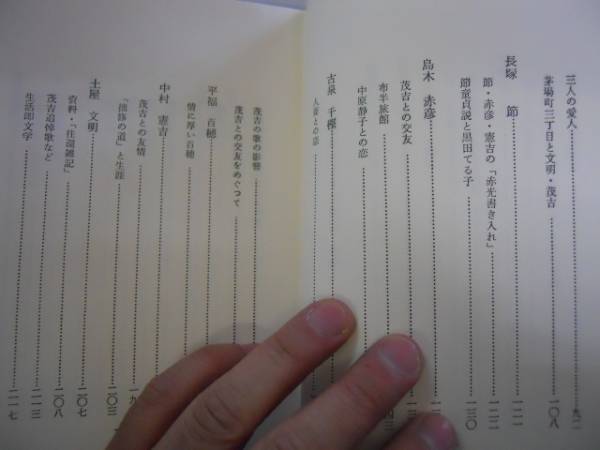 三人の愛人
茅場町三丁目と文明・茂吉……一〇八
長塚 節……一二一
節・赤彦・憲吉の「赤光書き入れ」……一二二
節童貞説と黒田てる子……一三〇
島木 赤彦
茂吉との交友
布半旅館
中原静子との恋
古泉 千樫
人妻との恋
茂吉の歌の影響
茂吉との交友をめぐつて
平福 百穂
情に厚い百穂
中村 憲吉
茂吉との友情
の道」と生涯……二〇三
土屋 文明……二〇七
資料・「往還雑記」……二〇八
茂吉追悼歌など……二一三
生活即文学……二一七